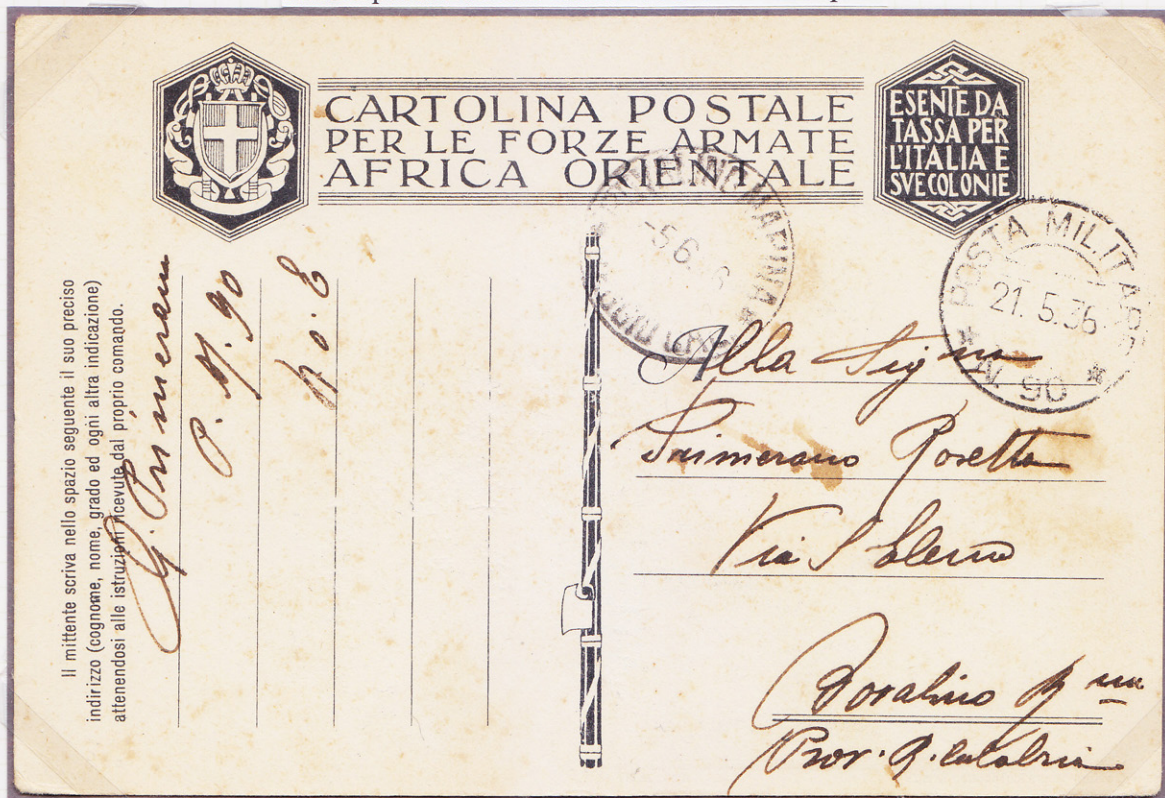 CARTOLINA POSTALE
PER LE FORZE ARMATE
AFRICA ORIENTALE
ESENTE DA
TASSA PER
L'ITALIA E
SVE COLONIE
POSTA MILITARE
21.5.36
* N. 90 *
MARINA *
-5.6. 6
Il mittente scriva nello spazio seguente il suo preciso
indirizzo (cognome, nome, grado ed ogni altra indicazione)
attenendosi alle istruzioni ricevute dal proprio comando.
G. Primerano
P. M. 90
A. O. E
Alla Sig.na
Primerano Rosetta
Via S Elena
Bovalino Mna
Prov. R. Calabria